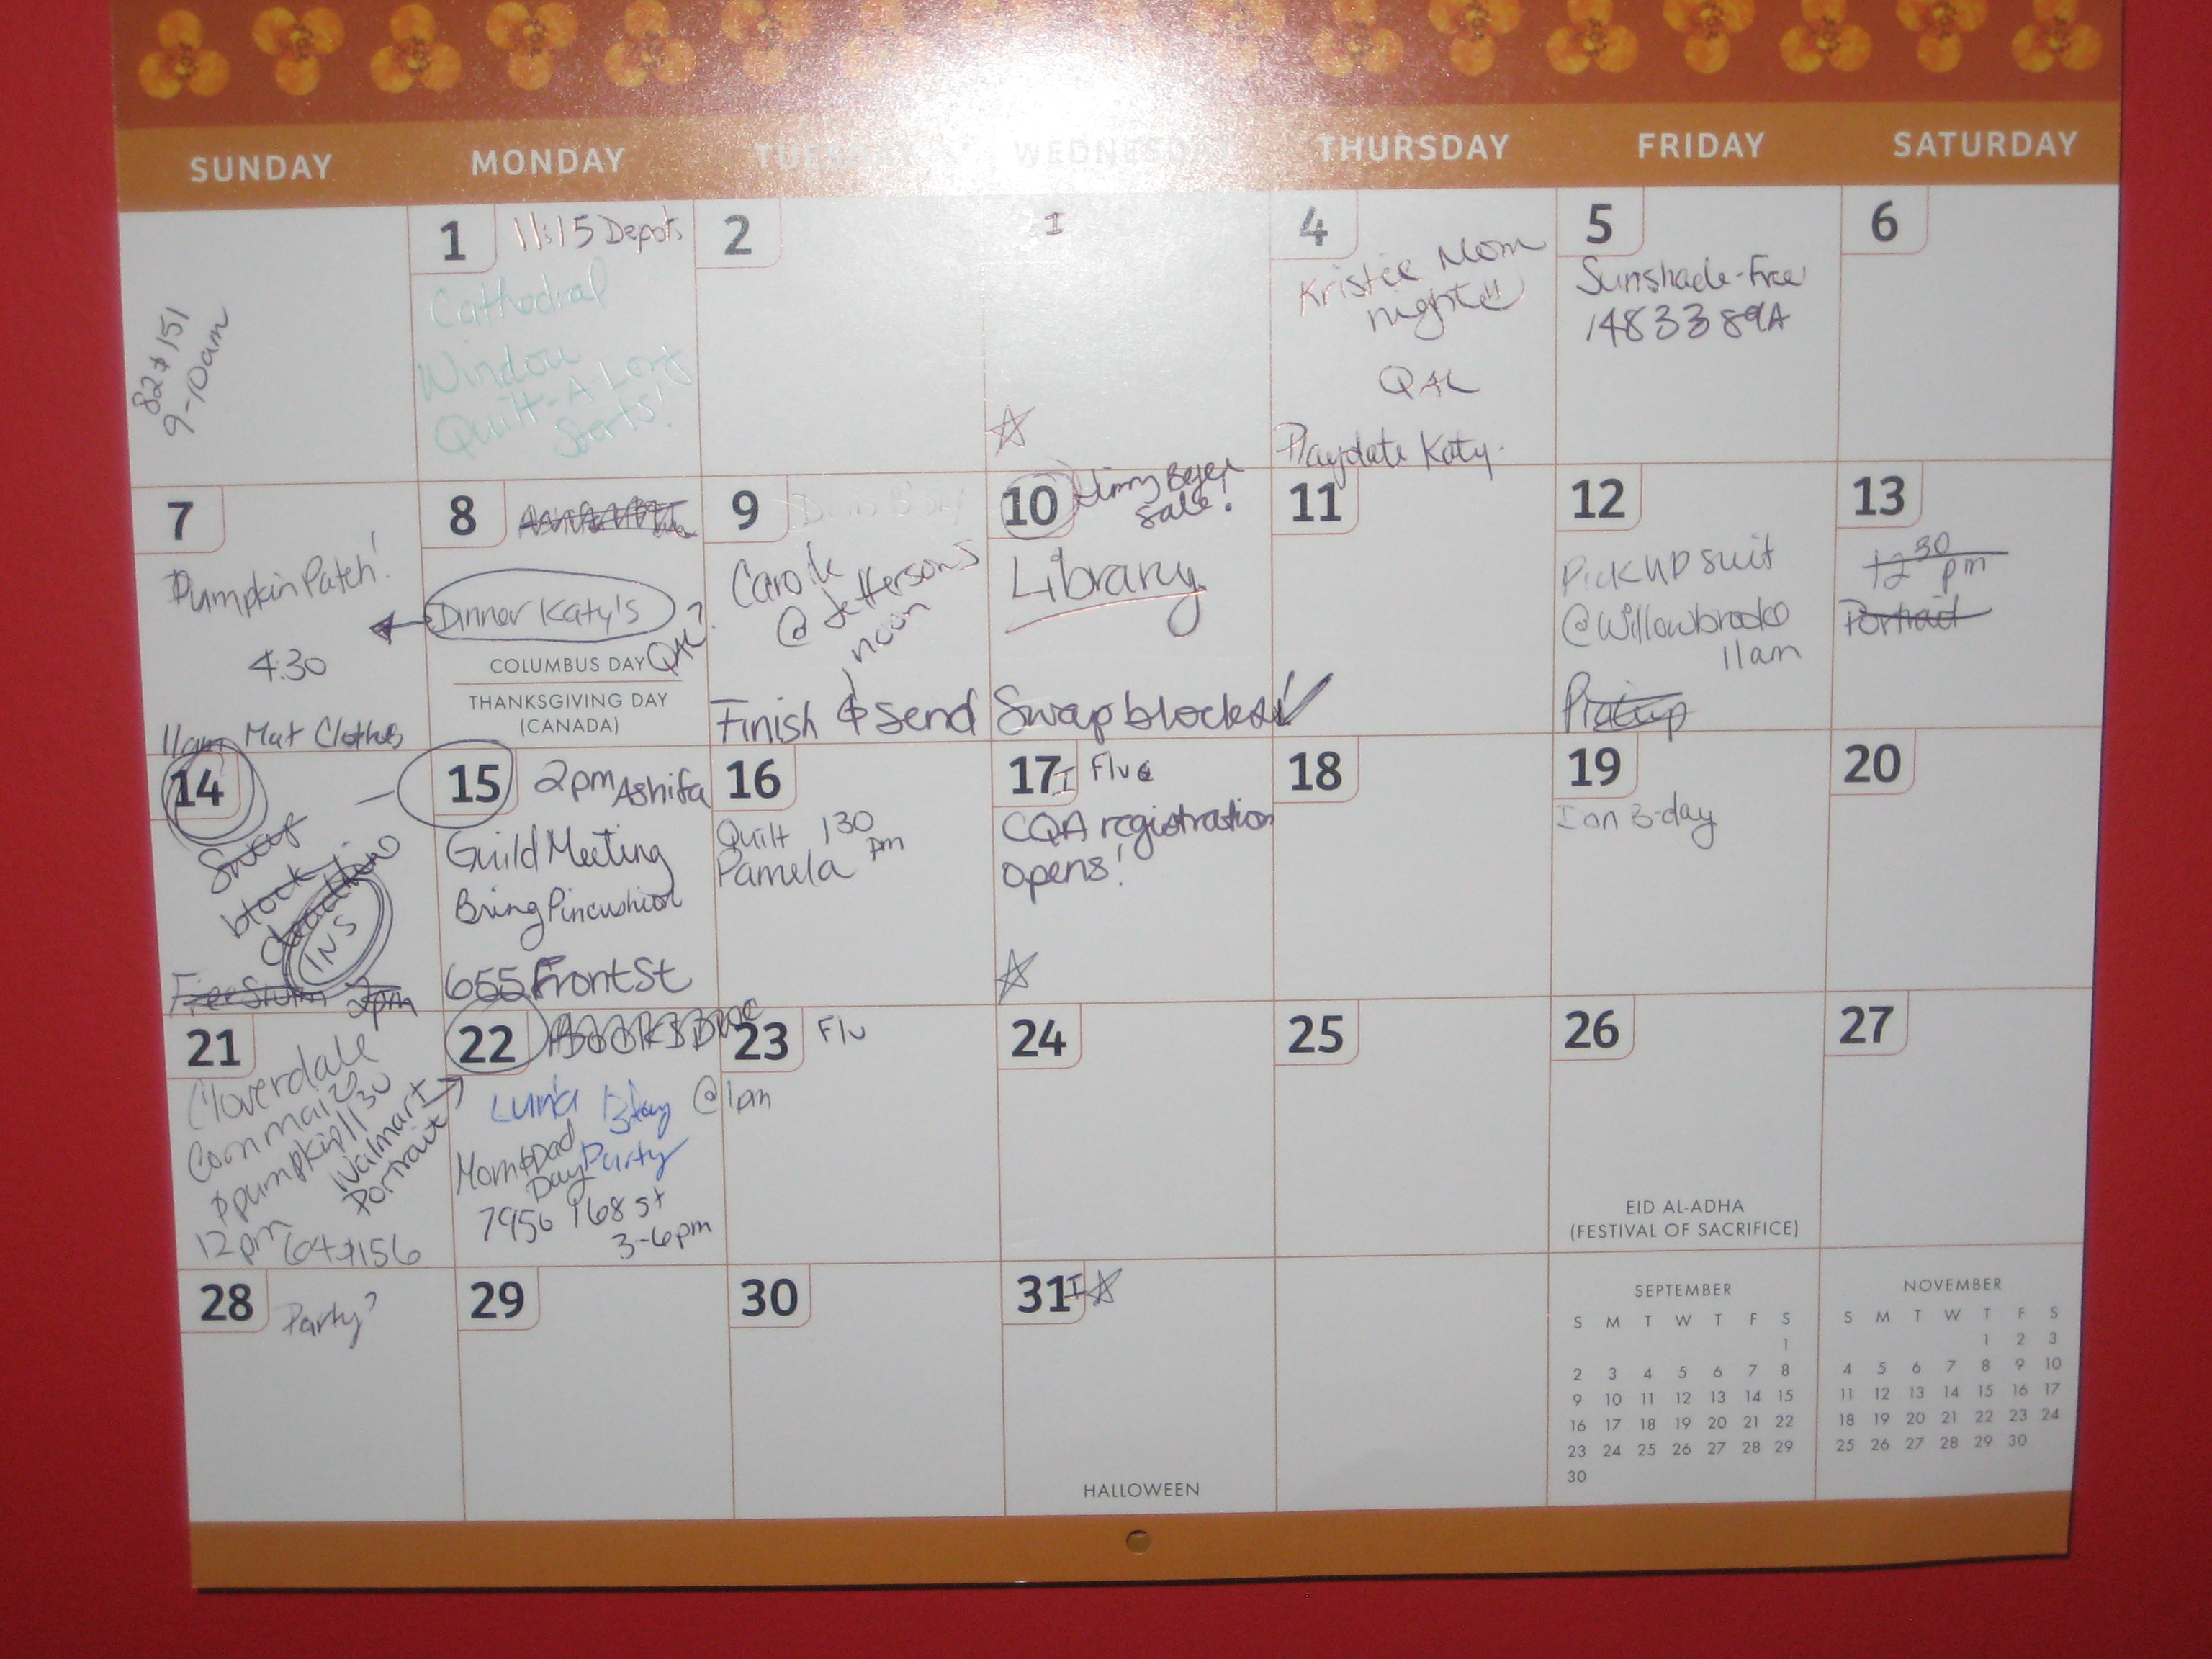 SUNDAY MONDAY TUESDAY WEDNESDAY THURSDAY FRIDAY SATURDAY
82 & 151
9-10am
1 11:15 Depot
Cathedral
Window
Quilt-A-Long
Starts!
2
I
4
Kristie Mom
night!!
QAL
Playdate Katy.
5
Sunshade-Free
1483389A
6
7
Pumpkin Patch!
4:30
11am Mat Clothes
8
Dinner Katy's
QAL?
COLUMBUS DAY
THANKSGIVING DAY
(CANADA)
9
Carole
@ Jeffersons
noon
Finish & Send Swap blocks
10
Jinny Beyer
Sale!
Library
11
12
Pick up suit
@Willowbrook
11am
13
12 30
pm
Portrait
14
Swap
block
deadline
INS
Free Swim 2pm
15 2pm Ashifa
Guild Meeting
Bring Pincushion
655 Front St
16
Quilt 1 30
pm
Pamela
17 I Flu
CQA registration
opens!
18
19
Ian B-day
20
21
Cloverdale
Corn maize
& pumpkin 11 30
Walmart
Portrait
12pm 64 & 156
22 BOOKS DUE
Luka Bday @ 1pm
Party
Mom & Dad
Day
7956 168 st
3-6pm
23 Flu
24
25
26
EID AL-ADHA
(FESTIVAL OF SACRIFICE)
27
28 Party?
29
30
31 I
HALLOWEEN
SEPTEMBER
S M T W T F S
1
2 3 4 5 6 7 8
9 10 11 12 13 14 15
16 17 18 19 20 21 22
23 24 25 26 27 28 29
30
NOVEMBER
S M T W T F S
1 2 3
4 5 6 7 8 9 10
11 12 13 14 15 16 17
18 19 20 21 22 23 24
25 26 27 28 29 30